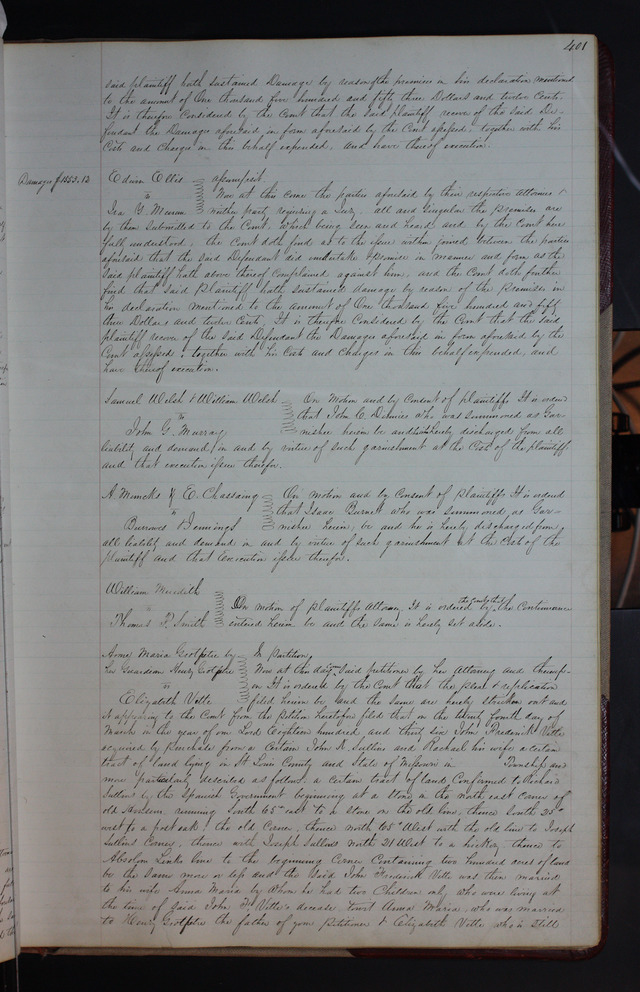 401
said plaintiff hath sustained Damage by reason of the premises in his declaration mentioned
to the amount of One thousand five hundred and fifty three Dollars and twelve Cents.
It is therefore Considered by the Court that the said plaintiff recover of the said De-
fendant the Damages aforesaid in form aforesaid by the Court assessed, together with his
Costs and Charges in this behalf expended, and have thereof execution.
Damages $1553.12
Edwin Ellis assumpsit.
vs Now at this come the parties aforesaid by their respective attornies &
Ira G. neither party requiring a Jury, all and singular the premises are
by them submitted to the Court, which being seen and heard, and by the Court here
fully understood, the Court doth find as to the issue within joined between the parties
aforesaid that the said Defendant did undertake & promise in manner and form as the
said plaintiff hath above thereof Complained against him, and the Court doth further
find that said Plaintiff hath sustained damage by reason of the premises in
his declaration mentioned to the amount of One thousand five hundred and fifty
three Dollars and twelve Cents, It is therefore Considered by the Court that the said
plaintiff recover of the said Defendant the Damages aforesaid in form aforesaid by the
Court assessed, together with his Costs and Charges in this behalf expended, and
have thereof execution.
Samuel Welsh & William Welsh On Motion and by Consent of plaintiffs It is ordered
vs that John C. who was summoned as Gar-
John G. Murray nishee herein be and hereby discharged from all
liability and demand, in and by virtue of such garnishment at the Cost of the plaintiff
and that execution issue therefor.
A Muncks & E. Chassaing On motion and by Consent of Plaintiffs It is ordered
vs that Isaac Burnett who was summoned as Gar-
Burrows & Jennings nishee herein, be and he is hereby discharged from
all liability and demand in and by virtue of such garnishment at the Cost of the
plaintiff and that execution issue therefor.
William Meredith
vs On motion of plaintiffs Attorney, It is ordered by the Court that the Continuance
Thomas F. Smith entered herein be and the same is hereby set aside.
Anna Maria Grotpeter by In Partition,
her Guardian Henry Grotpeter Now at this day came said petitioner by her Attorney and thereup-
vs on It is ordered by the Court that the pleas & replication
Elizabeth Votte filed herein be and the same are hereby stricken out and
it appearing to the Court from the Petition heretofore filed that on the twenty fourth day of
March in the year of our Lord Eighteen hundred and thirty six John Frederick Votte
acquired by purchase from a Certain John R. Sullins and Rachael his wife a certain
tract of land lying in St Louis County and State of Missouri in Township and
more particularly described as follows: a certain tract of land Confirmed to Richard
Sullins by the Spanish Government beginning at a stone in the north east Corner of
old running South 65° east to a Stone on the old line, thence South 25°
west to a post oak, the old Corner, thence North 65° West with the old line to Joseph
Sullins Corner, thence with Joseph Sullins North 21 West to a hickory, thence to
Absolom Links line to the beginning Corner Containing two hundred acres of land
be the same more or less and the said John Frederick Votte was then married
to his wife Anna Maria by whom he had two Children only who were living at
the time of said John F. Votte's decease, towit Anna Maria, who was married
to Henry Grotpeter the father of your Petitioner & Elizabeth Votte who is still